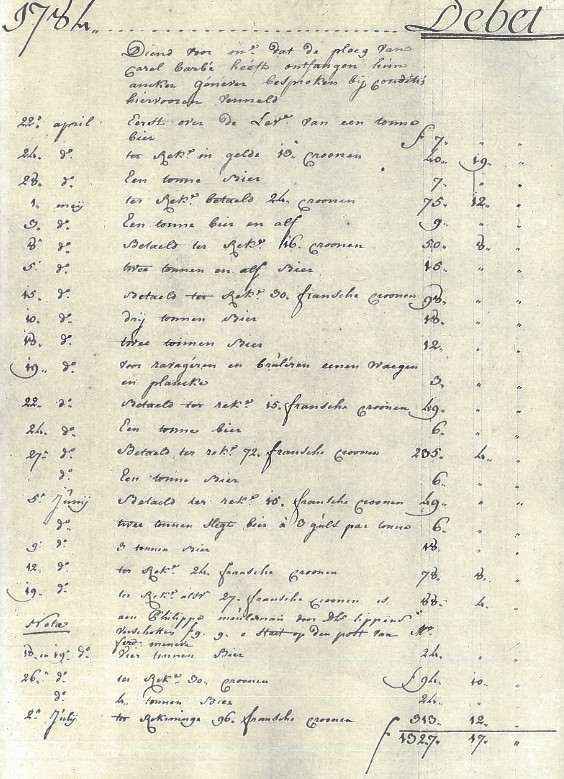 1784. Debet
Diend voor dat de ploeg van
Carel Barbé heeft ontfangen
ancker génever besproken bij conditie
hiervooren vermeld
22n april Eerst over de Leve van een tonne
bier f 7. " "
24. do ter Reke in gelde 13 Croonen 40. 19. "
28. do Een tonne Bier 7. " "
1. meij ter Reke betaeld 24 croonen 75. 12. "
3. do Een tonne bier en alf 9. " "
do Betaeld ter Reke 16 croonen 50. 8. "
5. do twee tonnen en alf Bier 15. " "
15. do Betaeld ter Reke 30. fransche Croonen 98. " "
10. do drij tonnen Bier 18. " "
18. do twee tonnen Bier 12. " "
19. do voor ravagéren en bruléren eenen Waegen
en plancke 3. " "
22. do Betaeld ter reke 15. fransche croonen 49. " "
24. do Een tonne bier 6. " "
27n do Betaeld ter reke 72. fransche Croonen 235. 4. "
do Een tonne Bier 6. " "
5n Junij Betaeld ter reke 15. fransche croonen 49. " "
do twee tonnen Slegt bier à 3 guls par tonne 6. " "
9. do 3 tonnen Bier 18. " "
12. do ter Reke 24 fransche Croonen 78. 8. "
19. do ter Reke 27. fransche croonen is 88. 4. "
Nota aen Philippe door
f 9. 9. e Staet op den post van

18 en 19. do Vier tonnen Bier 24. " "
26n do ter Reke 30. croonen f 94. 10. "
do 4. tonnen Bier 24. " "
2n Julij ter Rekeninge 96. fransche Croonen 313. 12. "
f 1327. 17. "